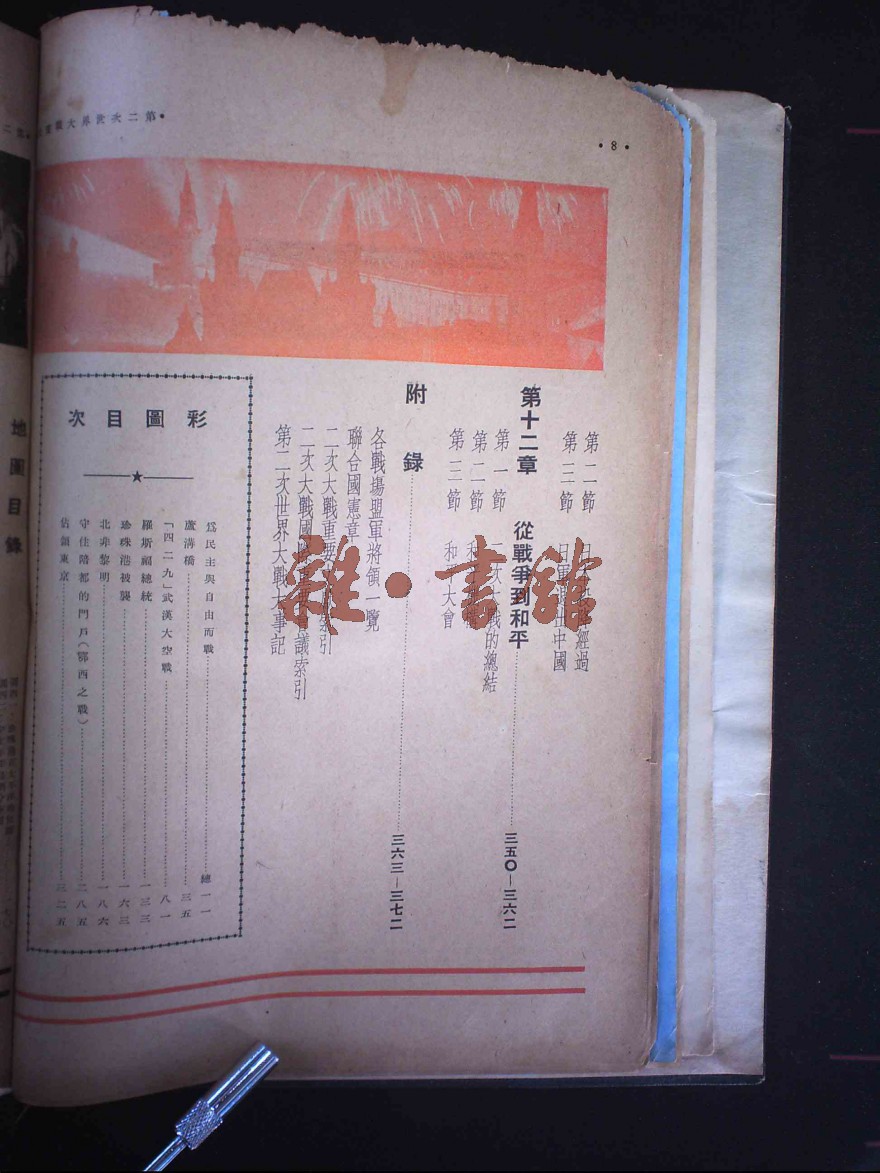 •第二次世界大戰
• 8 •
第二節　日經過
第三節　日軍中國
第十二章　從戰爭到和平　三五〇—三六二
第一節　二次大戰的總結
第二節　和
第三節　和大會
附錄　三六三—三七二
各戰場盟軍將領一覽
聯合國憲章
二次大戰重要索引
二次大戰國議索引
第二次世界大戰大事記
彩圖目次
爲民主與自由而戰　總一一
蘆溝橋　三五
「四二九」武漢大空戰　八一
羅斯福總統　一三三
珍珠港被襲　一六三
北非黎明　一八六
守住陪都的門戶(鄂西之戰)　二八五
佔領東京　三二五
地圖目錄
雜·書館